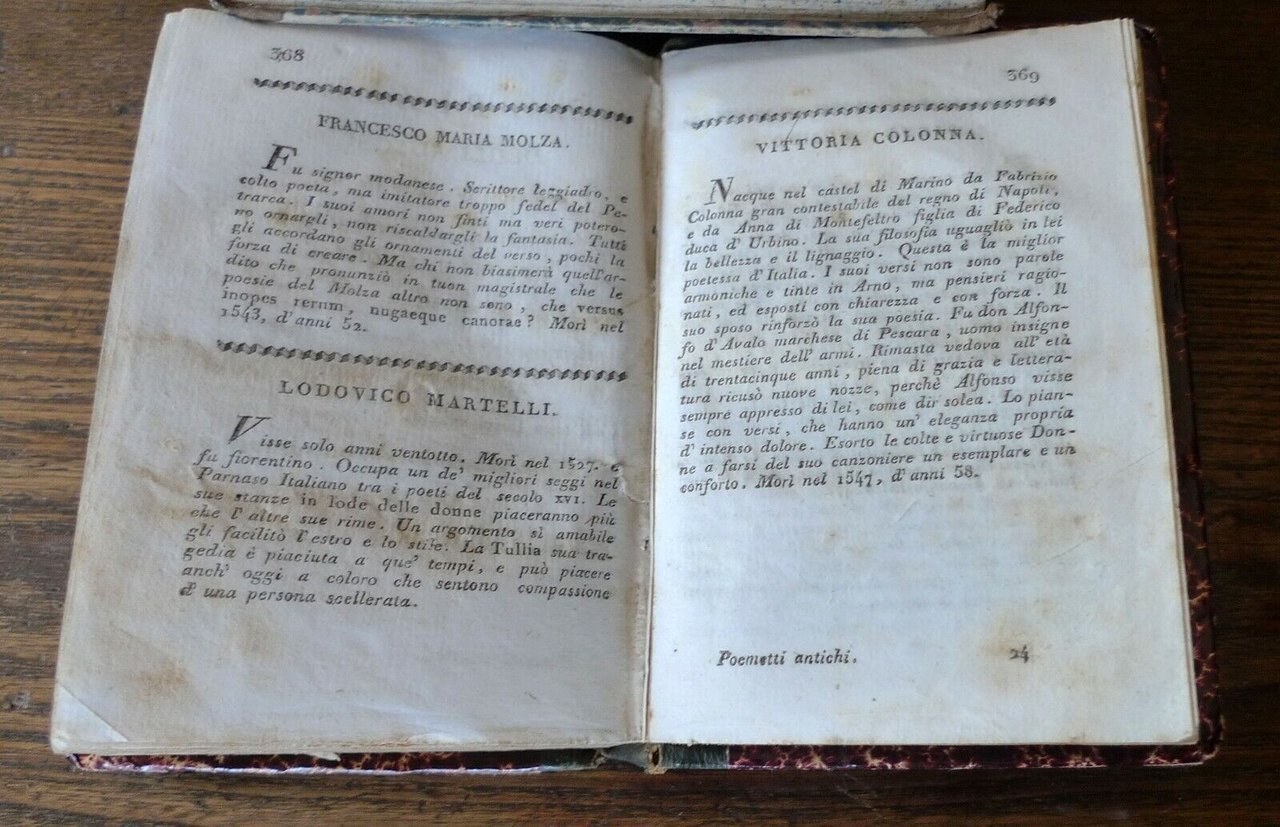 368
FRANCESCO MARIA MOLZA.
Fu signor modanese. Scrittore leggiadro, e
colto poeta, ma imitatore troppo fedel del Pe-
trarca. I suoi amori non finti ma veri potero-
no ornargli, non riscaldargli la fantasia. Tutti
gli accordano gli ornamenti del verso, pochi la
forza di creare. Ma chi non biasimerà quell'ar-
dito che pronunziò in tuon magistrale che le
poesie del Molza altro non sono, che versus
inopes rerum, nugaeque canorae? Morì nel
1543, d'anni 52.
LODOVICO MARTELLI.
Visse solo anni ventotto. Morì nel 1527. e
fu fiorentino. Occupa un de' migliori seggi nel
Parnaso Italiano tra i poeti del secolo XVI. Le
sue stanze in lode delle donne piaceranno più
che l'altre sue rime. Un argomento sì amabile
gli facilitò l'estro e lo stile. La Tullia sua tra-
gedia è piaciuta a que' tempi, e può piacere
anch' oggi a coloro che sentono compassione
d' una persona scellerata.
369
VITTORIA COLONNA.
Nacque nel castel di Marino da Fabrizio
Colonna gran contestabile del regno di Napoli,
e da Anna di Montefeltro figlia di Federico
duca d' Urbino. La sua filosofia uguagliò in lei
la bellezza e il lignaggio. Questa è la miglior
poetessa d'Italia. I suoi versi non sono parole
armoniche e tinte in Arno, ma pensieri ragio-
nati, ed esposti con chiarezza e con forza. Il
suo sposo rinforzò la sua poesia. Fu don Alfon-
so d' Avalo marchese di Pescara, uomo insigne
nel mestiere dell' armi. Rimasta vedova all' età
di trentacinque anni, piena di grazia e lettera-
tura ricusò nuove nozze, perchè Alfonso visse
sempre appresso di lei, come dir solea. Lo pian-
se con versi, che hanno un' eleganza propria
d' intenso dolore. Esorto le colte e virtuose Don-
ne a farsi del suo canzoniere un esemplare e un
conforto. Morì nel 1547, d'anni 58.
Poemetti antichi.
24